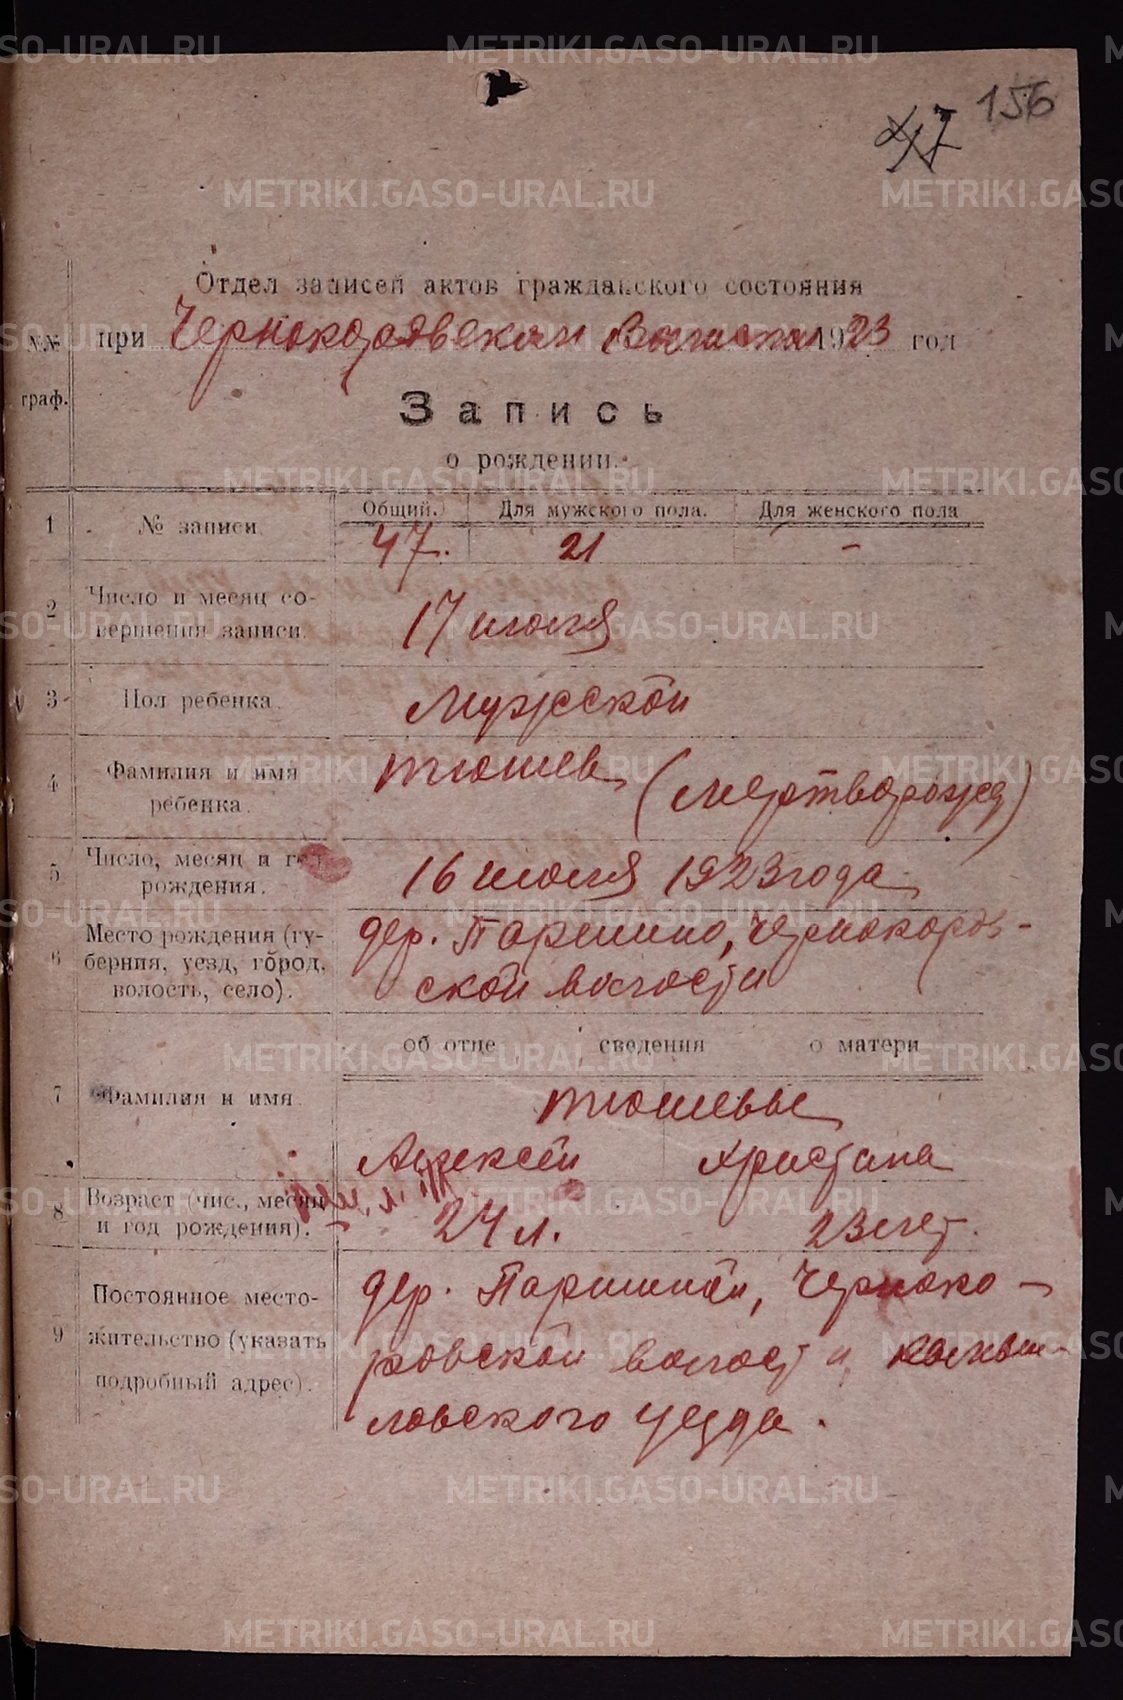 156
47
Отдел записей актов гражданского состояния
№№ при Чернокоровском Волисполк 1923 год
граф.
Запись
о рождении.
Общий. Для мужского пола. Для женского пола
1 № записи 47. 21 -
2 Число и месяц со-
вершения записи. 17 июля
3 Пол ребенка. Мужской
4 Фамилия и имя ребенка. Тюшев (мертворожд)
5 Число, месяц и год рождения. 16 июля 1923 года
6 Место рождения (гу-
берния, уезд, город,
волость, село).
дер. Паршино, Чернокоров-
ской волости
об отце сведения о матери
7 Фамилия и имя Тюшевы
Алексей Христина
8 Возраст (чис., месяц
и год рождения). 24 л. 23 лет.
9 Постоянное место-
жительство (указать
подробный адрес).
дер. Паршиной, Черноко-
ровской волости, Камыш-
ловского уезда.
METRIKI.GASO-URAL.RU